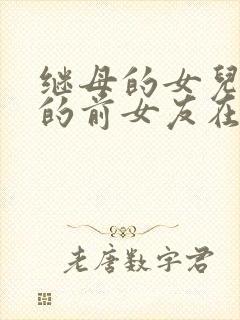 继母的女兒
的前女友在
老唐数字君